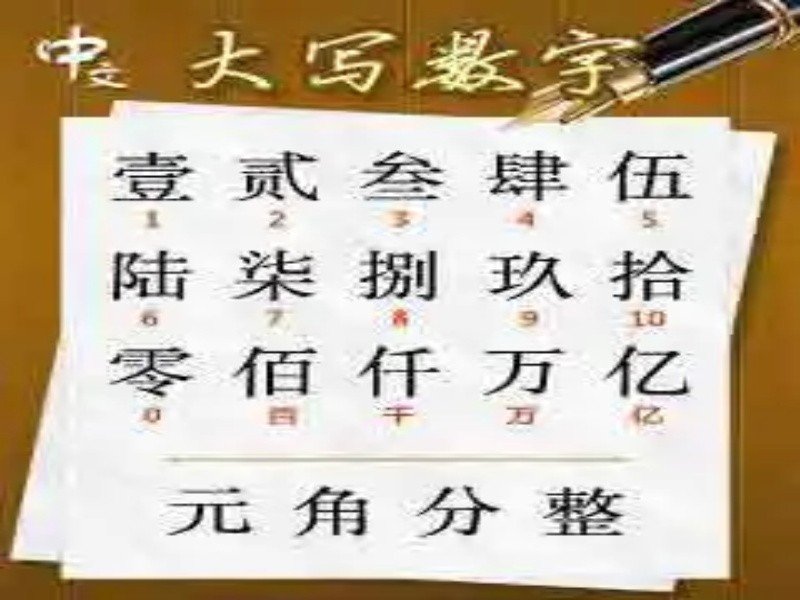 中文 大写数字
壹 贰 叁 肆 伍
1 2 3 4 5
陆 柒 捌 玖 拾
6 7 8 9 10
零 佰 仟 万 亿
0 百 千 万 亿
元 角 分 整